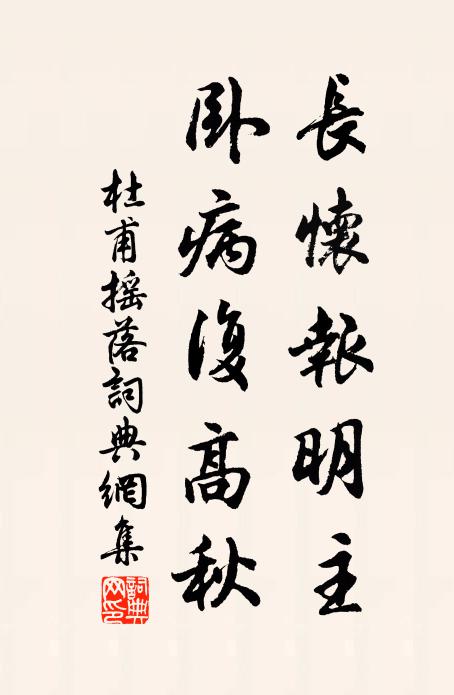 長懷報明主
臥病復高秋
杜甫搖落詞典網集
詞典網印